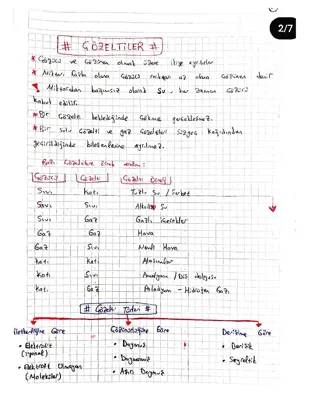 2/7
# GÖZELTİLER #
* Çözücü ve Çözünen olmak üzere ikiye ayrılırlar
* Miktarı fazla olana Çözücü miktarı az olana Çözünen denir
Miktardan bağımsız olarak Su, her zaman çözücü
kabul edilir.
* Bir Çözelti bekletildiğinde Çökme gerçekleşmez.
* Bir Sulu Çözelti ve gaz Çözeltileri Süzgeç kağıdından
geçirildiğinde bileşenlerine ayrılmaz.
Bazı Çözeltilere Örnek verelim:
Çözücü Çözelti Çözelti Örneği
Sıvı Katı Tuzlu Su / Şerbet
Sıvı Sıvı Alkollü Su
Sıvı Gaz Gazlı İçecekler
Gaz Gaz Hava
Gaz Sıvı Nemli Hava
Katı Katı Alaşımlar
Katı Sıvı Amalgam / Diş dolgusu
Katı Gaz Paladyum - Hidrojen Gazı
# Çözelti Türleri #
İletkenliğine Göre Çözünürlüğüne Göre Derişime Göre
• Elektrolit • Doymuş • Derişik
(İyonal) • Doymamış • Seyreltik
• Elektrolit Olmayan • Aşırı Doymuş
(Moleküler)